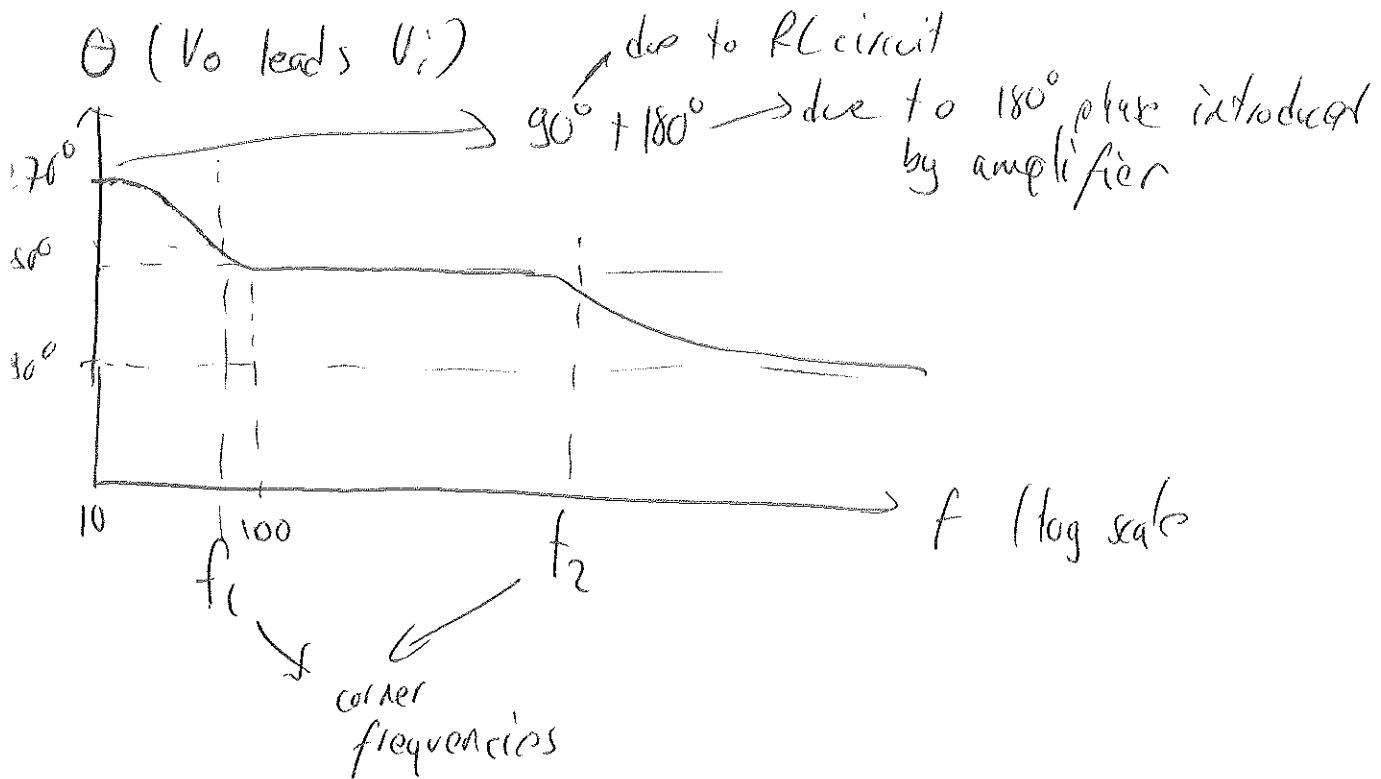 θ (Vo leads Vi)
due to RC circuit
90° + 180° → due to 180° phase introduced
by amplifier
70°
80°
90°
10
100
f1
f2
f (log scale
corner
frequencies